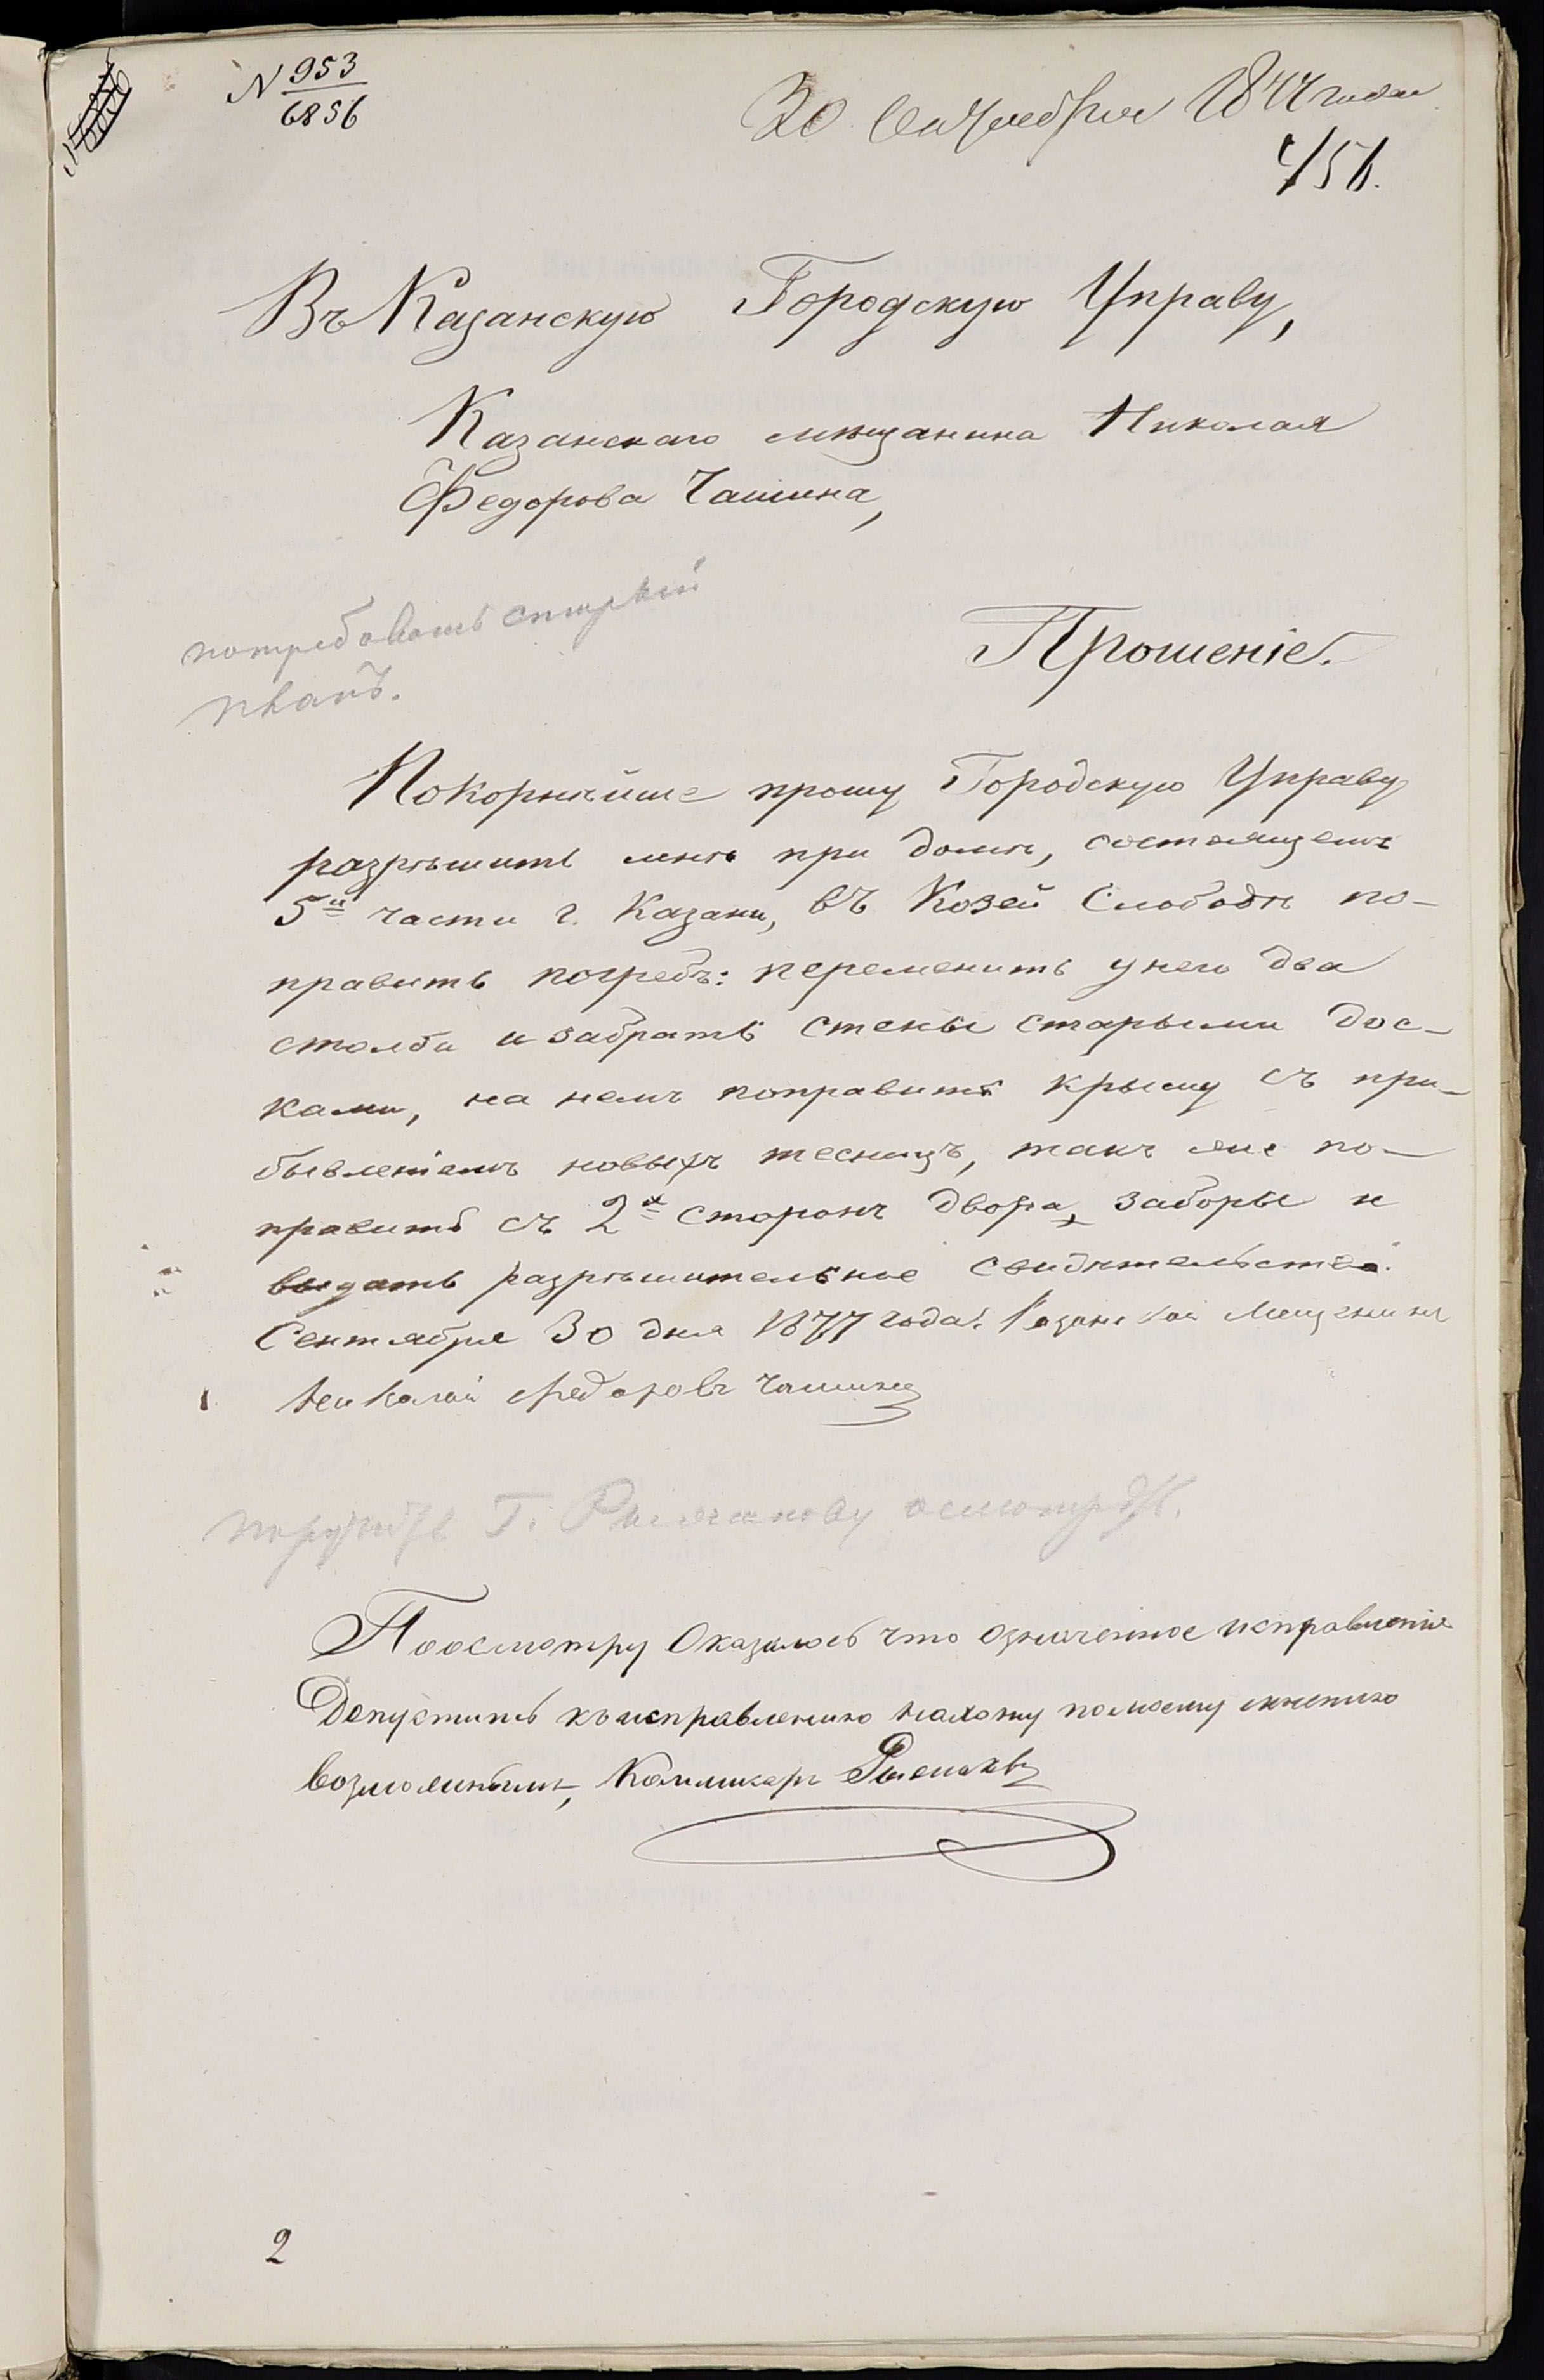 N 953
6856
30 Сентября 1877 года
456.
Въ Казанскую Городскую Управу,
Казанскаго мѣщанина Николая
Федорова Чашина,
потребовать старый
планъ.
Прошеніе.
Покорнѣйше прошу Городскую Управу
разрѣшить мнѣ при домѣ, состоящемъ
5й части г. Казани, въ Козей Слободѣ по-
править погребъ: переменить у него два
столба и забрать стены старыми дос-
ками, на немъ поправить крышу съ при-
бывленіемъ новыхъ тесницъ, такъ же по-
править съ 2х сторонъ двора, заборы и
выдать разрѣшительное свидѣтельство.
Сентября 30 дня 1877 года. Казанской Мещенинъ
Николай Федоровъ Чашинъ
Г. осмотръ.
По осмотру Оказалось что означенное исправленіе
Допустить къ исправлению нахожу по моему мнению
возможнымъ,
2